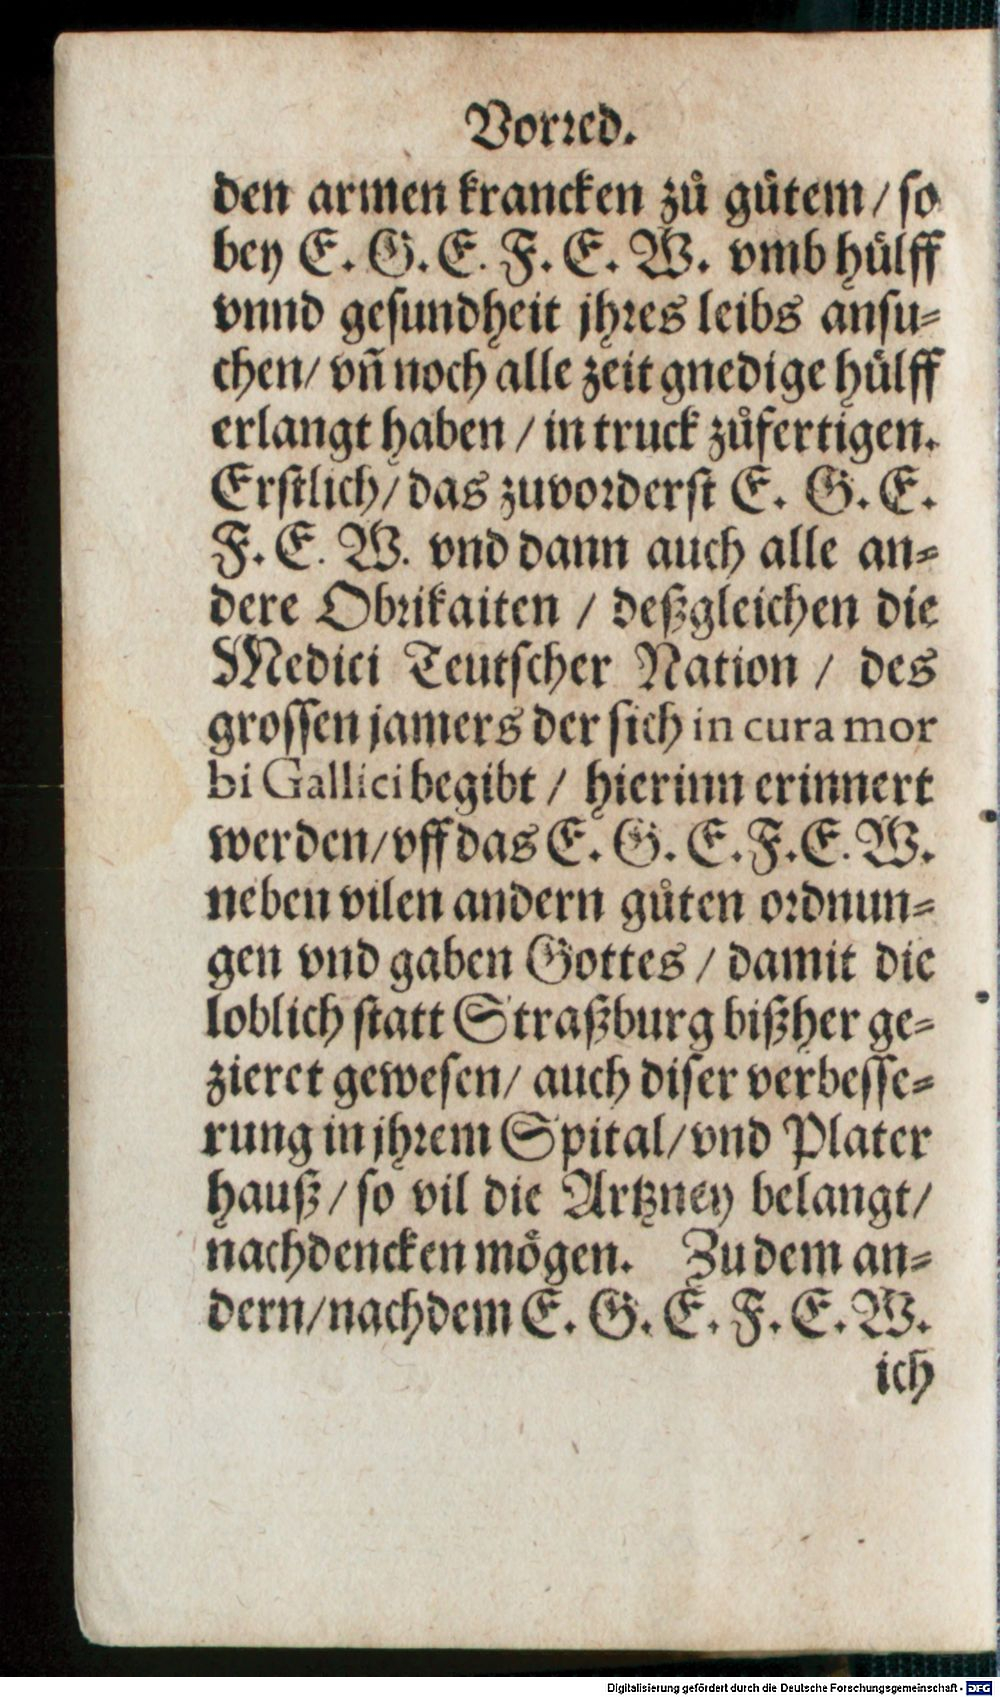 Vorred.
den armen krancken zů gůtem / so
bey E. G. E. F. E. W. vmb hülff
vnnd gesundheit jhres leibs ansu-
chen / vñ noch alle zeit gnedige hülff
erlangt haben / in truck zůfertigen.
Erstlich / das zuvorderst E. G. E.
F. E. W. vnd dann auch alle an-
dere Obrikaiten / deßgleichen die
Medici Teutscher Nation / des
grossen jamers der sich in cura mor
bi Gallici begibt / hierinn erinnert
werden / vff das E. G. E. F. E. W.
neben vilen andern gůten ordnun-
gen vnd gaben Gottes / damit die
loblich statt Straßburg bißher ge-
zieret gewesen / auch diser verbesse-
rung in jhrem Spital / vnd Plater
hauß / so vil die Artzney belangt /
nachdencken mögen. Zu dem an-
dern / nachdem E. G. E. F. E. W.
ich
Digitalisierung gefördert durch die Deutsche Forschungsgemeinschaft - DFG